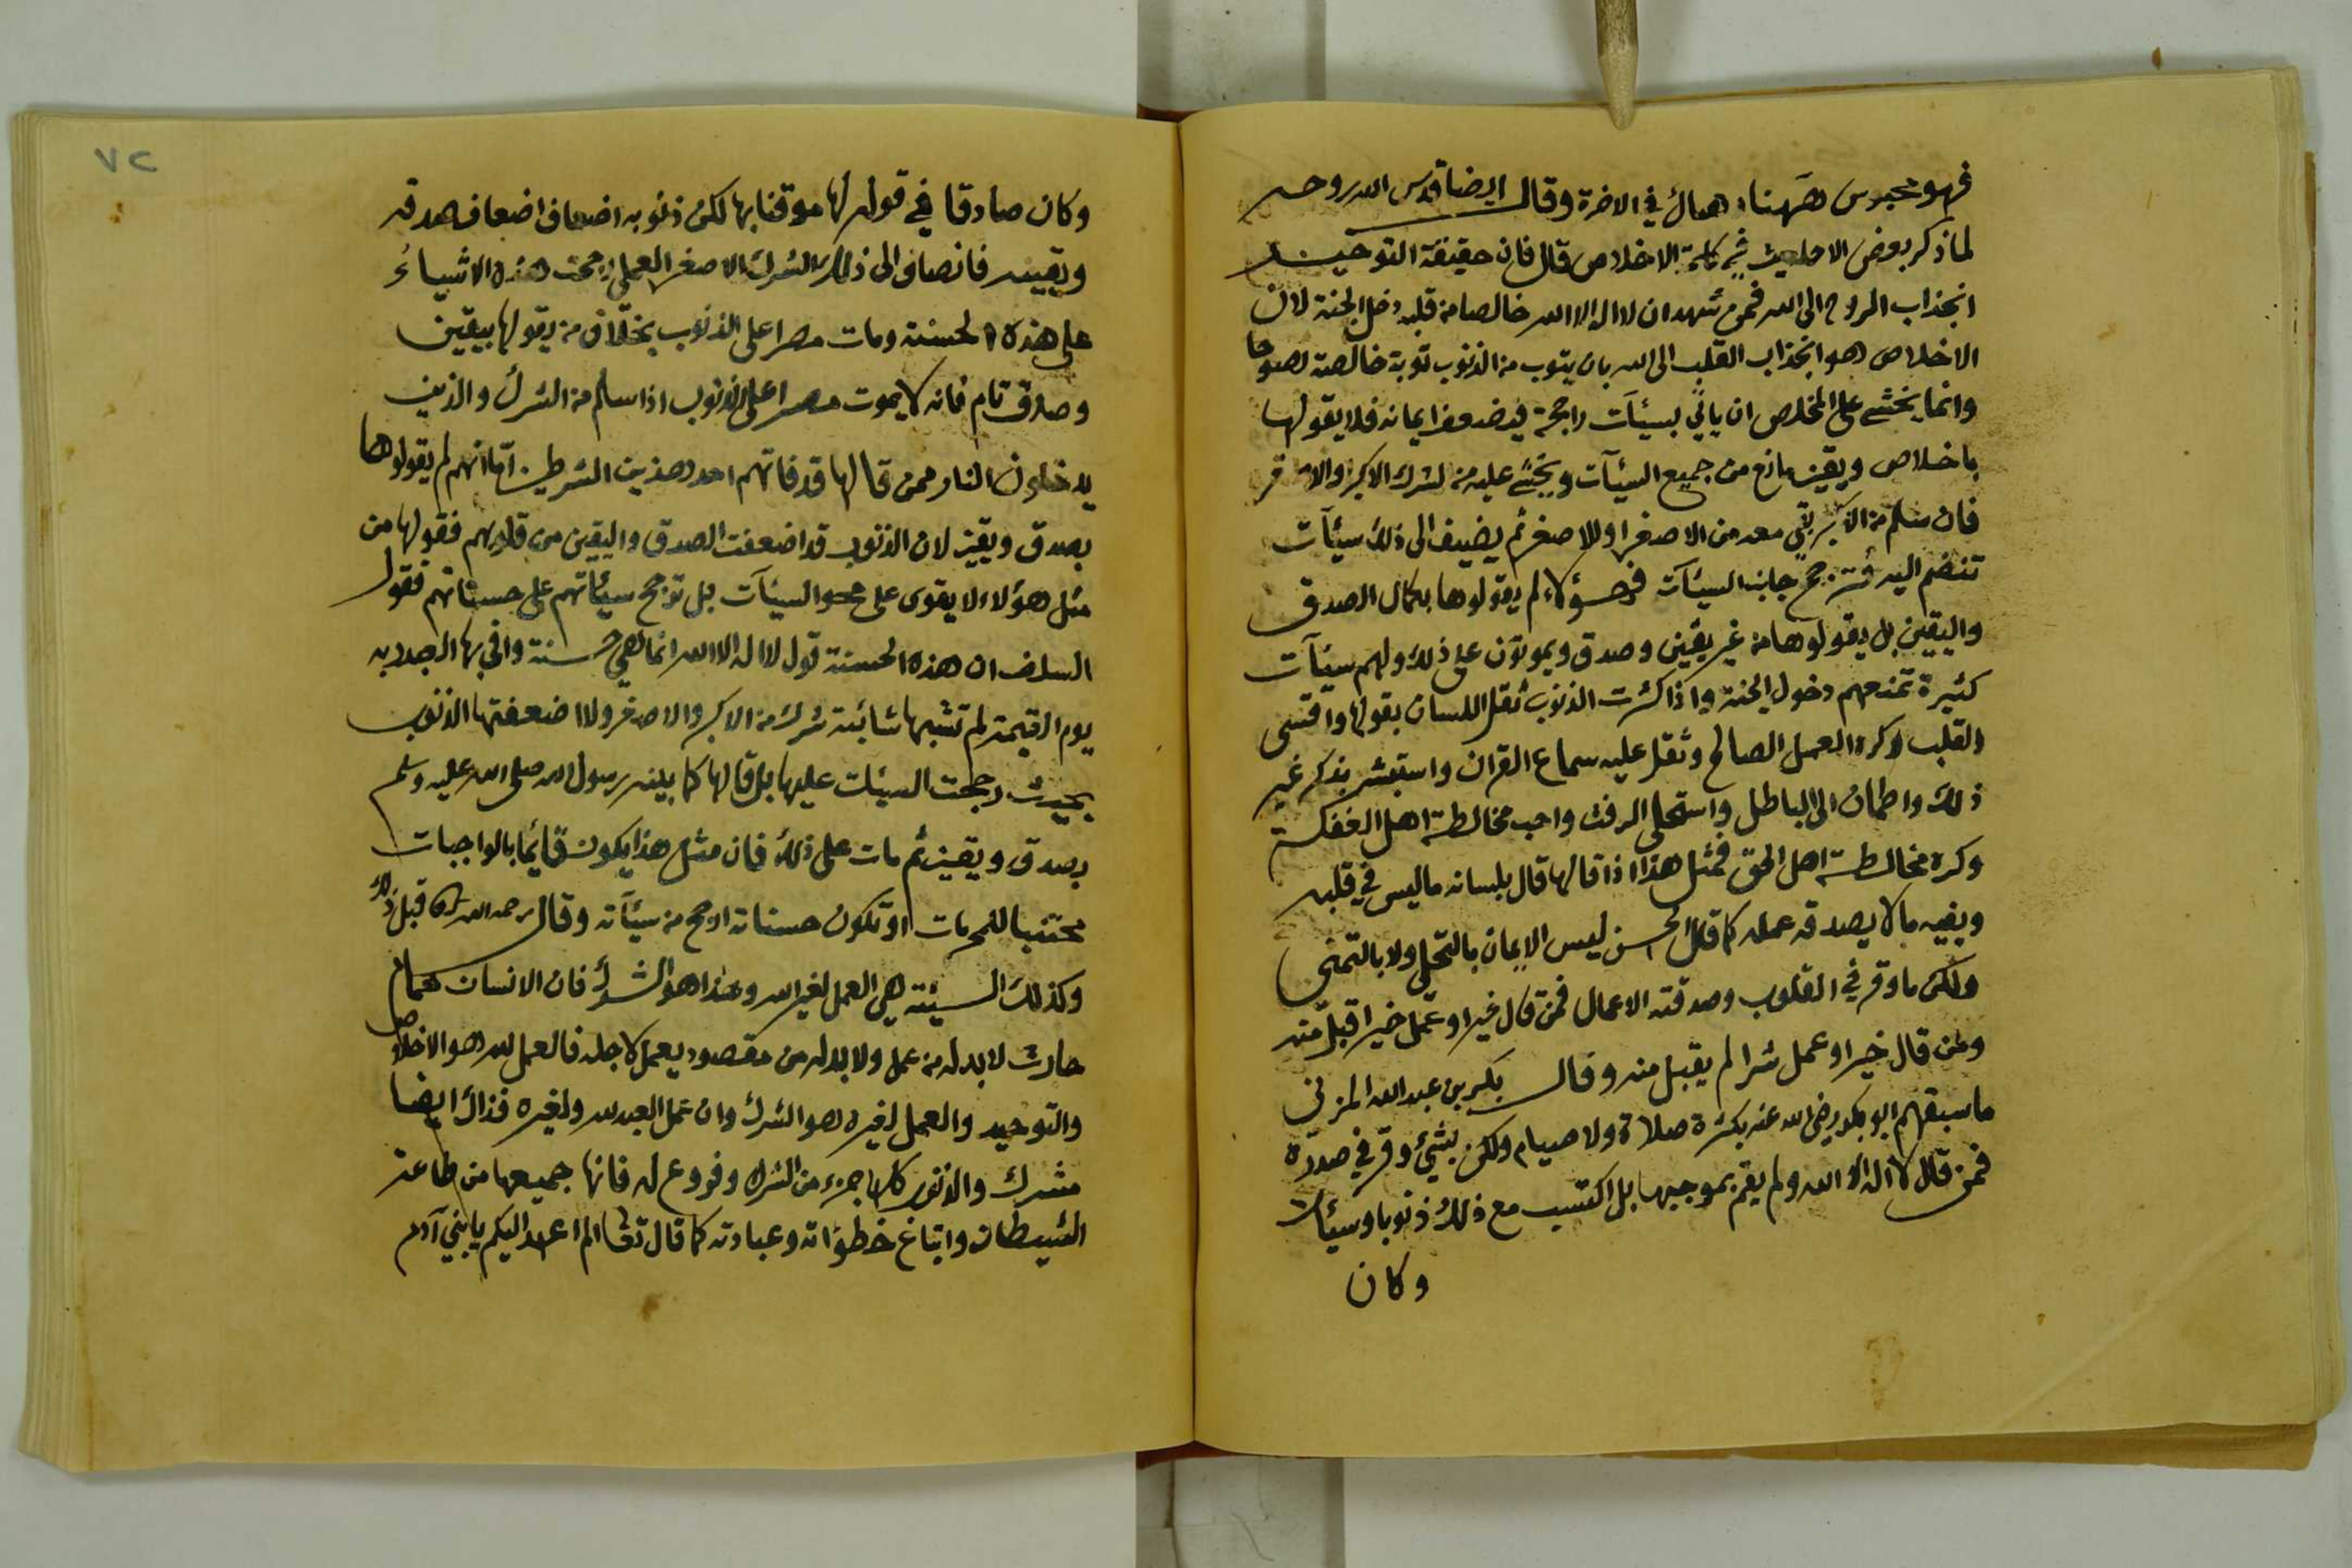 فهو محبوس ههنا وهناك في الاخرة وقال ايضا قدس الله روحه
لما ذكر بعض الاحاديث في كلمة الاخلاص قال فان حقيقة التوحيد
انجذاب الروح الى الله فمن شهد ان لا اله الا الله خالصا من قلبه دخل الجنة لان
الاخلاص هو انجذاب القلب الى الله بان يتوب من الذنوب توبة خالصة نصوحا
وانما يخشى على المخلص ان ياتي بسيئآت راجحة فيضعف ايمانه فلا يقولها
باخلاص ويقين مانع من جميع السيئآت ويخشى عليه من الشرك الاكبر والاصغر
فان سلم من الاكبر بقي معه من الاصغر او للاصغر ثم يضيف الى ذلك سيئآت
تنضم اليه فترجح جانب السيئآت فهؤلاء لم يقولوها بكمال الصدق
واليقين بل يقولوها من غير يقين وصدق ويموتون على ذلك ولهم سيئآت
كثيرة تمنعهم دخول الجنة واذا كثرت الذنوب ثقل اللسان بقولها وافتسى
القلب وكره العمل الصالح وثقل عليه سماع القران واستبشر بذكر غير
ذلك واطمان الى الباطل واستحلى الرفث واحب مخالطة اهل الغفلة
وكره مخالطة اهل الحق فمثل هذا اذا قالها قال بلسانه ما ليس في قلبه
وبفيه ما لا يصدقه عمله كما قال الحسن ليس الايمان بالتحلي ولا بالتمني
ولكن ما وقر في القلوب وصدقته الاعمال فمن قال خيرا وعمل خيرا قبل منه
ومن قال خيرا وعمل شرا لم يقبل منه وقال بكر بن عبد الله المزني
ما سبقهم ابو بكر رضي الله عنه بكثرة صلاة ولا صيام ولكن بشيء وقر في صدره
فمن قال لا اله الا الله ولم يقم بموجبها بل اكتسب مع ذلك ذنوبا وسيئات
وكان
٧٢
وكان صادقا في قوله لها موقنا بها لكن ذنوبه اضعاف اضعاف صدقه
ويقينه فانضاف الى ذلك الشرك الاصغر العملي رجحت هذه الاشياء
على هذه الحسنة ومات مصرا على الذنوب بخلاف من يقولها بيقين
وصدق تام فانه لا يموت مصرا على الذنوب اذا سلم من الشرك والذين
يدخلون النار ممن قالها قد فاتهم احد هذين الشرطين اما انهم لم يقولوها
بصدق ويقين لان الذنوب قد اضعفت الصدق واليقين من قلوبهم فقولها من
مثل هؤلاء لا يقوى على محو السيئآت بل ترجح سيئاتهم على حسناتهم فقول
السلف ان هذه الحسنة قول لا اله الا الله انما هي حسنة وافى بها العبد ربه
يوم القيمة لم تشبها شائبة شرك من الاكبر والاصغر ولا اضعفتها الذنوب
بحيث رجحت السيئات عليها بل قالها كما بينه رسول الله صلى الله عليه وسلم
بصدق ويقين ثم مات على ذلك فان مثل هذا يكون قائما بالواجبات
مجتنبا للمحرمات او تكون حسناته ارجح من سيئآته وقال رحمه الله قبل ذلك
وكذلك السيئة هي العمل لغير الله وهذا هو الشرك فان الانسان همام
حارث لا بد له من عمل ولا بد له من مقصود يعمل لاجله فالعمل لله هو الاخلاص
والتوحيد والعمل لغيره هو الشرك وان عمل العبد لله ولغيره فذاك ايضا
شرك والذنوب كلها جزء من الشرك وفروع له فانها جميعها من طاعة
الشيطان واتباع خطواته وعبادته كما قال تعا الم اعهد اليكم يا بني آدم